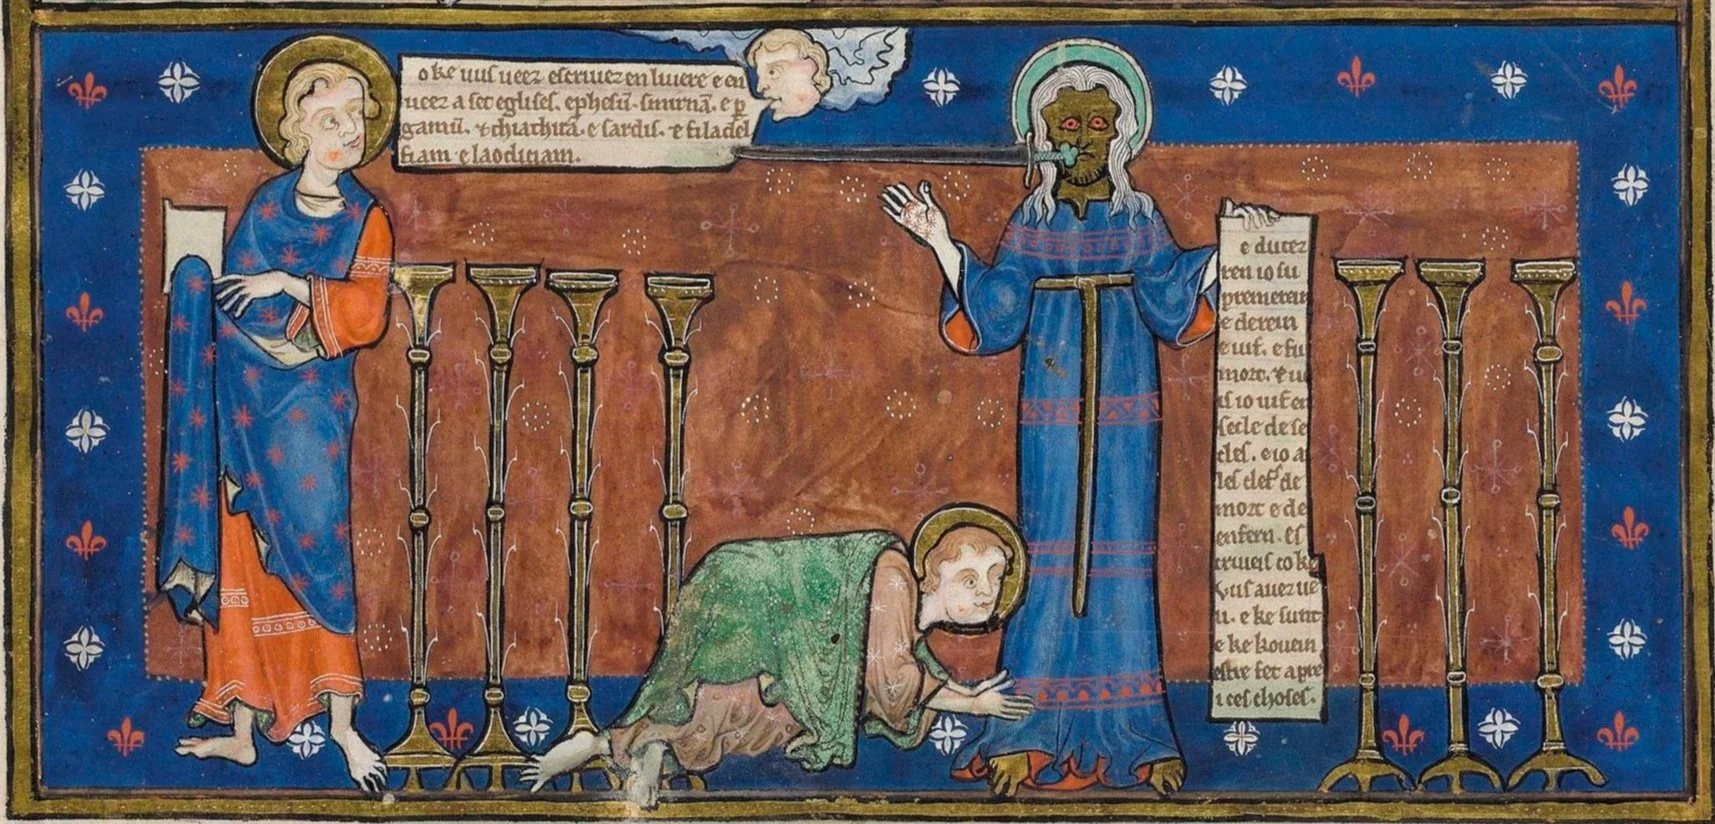 o ke uus ueez escriuez en liuere e en
ueez a set eglises. ephesū. smirnā. e p
gamū. & thiathirā. e sardis. e filadel
fiam e laodiciam.
e dutez
ren io su
premerein
e derein
e uif. e fu
mort. & ui
if io uif en
secle de se
cles. e io ai
les clefs de
mort e de
enfern. es
criueis co ke
uus auez ue
u. e ke sunt
e ke kouein
estre fet apre
i ces choses.